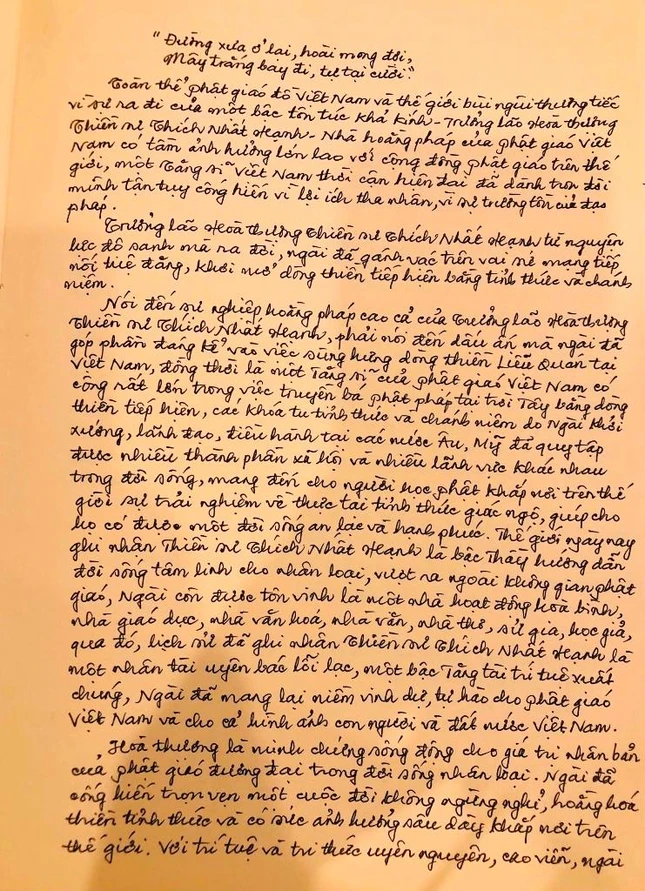 "Đường xưa ở lại, hoài mong đợi,
Mây trắng bay đi, tự tại cười."
Toàn thể phật giáo đồ Việt Nam và thế giới bùi ngùi thương tiếc
vì sự ra đi của một bậc tôn túc khả kính - Trưởng lão Hoà thượng
Thiền sư Thích Nhất Hạnh - Nhà hoằng pháp của phật giáo Việt
Nam có tầm ảnh hưởng lớn lao với cộng đồng phật giáo trên thế
giới, một Tăng sĩ Việt Nam thời cận hiện đại đã dành trọn đời
mình tận tụy cống hiến vì lợi ích tha nhân, vì sự trường tồn của đạo
pháp.
Trưởng lão Hoà thượng Thiền sư Thích Nhất Hạnh từ nguyện
lực độ sanh mà ra đời, ngài đã gánh vác trên vai sứ mạng tiếp
nối tuệ đăng, khơi mở dòng thiền tiếp hiện bằng tỉnh thức và chánh
niệm.
Nói đến sự nghiệp hoằng pháp cao cả của Trưởng lão Hoà thượng
Thiền sư Thích Nhất Hạnh, phải nói đến dấu ấn mà ngài đã
góp phần đáng kể vào việc sùng hưng dòng thiền Liễu Quán tại
Việt Nam, đồng thời là một Tăng sĩ của phật giáo Việt Nam có
công rất lớn trong việc truyền bá phật pháp tại trời Tây bằng dòng
thiền tiếp hiện, các khóa tu tỉnh thức và chánh niệm do Ngài khởi
xướng, lãnh đạo, điều hành tại các nước Âu, Mỹ đã quy tập
được nhiều thành phần xã hội và nhiều lãnh vực khác nhau
trong đời sống, mang đến cho người học phật khắp nơi trên thế
giới sự trải nghiệm về thực tại tỉnh thức giác ngộ, giúp cho
họ có được một đời sống an lạc và hạnh phúc. Thế giới ngày nay
ghi nhận Thiền sư Thích Nhất Hạnh là bậc Thầy hướng dẫn
đời sống tâm linh cho nhân loại, vượt ra ngoài không gian phật
giáo, Ngài còn được tôn vinh là một nhà hoạt động hoà bình,
nhà giáo dục, nhà văn hoá, nhà văn, nhà thơ, sử gia, học giả,
qua đó, lịch sử đã ghi nhận Thiền sư Thích Nhất Hạnh là
một nhân tài uyên bác lỗi lạc, một bậc Tăng tài trí tuệ xuất
chúng, Ngài đã mang lại niềm vinh dự, tự hào cho phật giáo
Việt Nam và cho cả hình ảnh con người và đất nước Việt Nam.
Hoà thượng là minh chứng sống động cho giá trị nhân bản
của phật giáo đương đại trong đời sống nhân loại. Ngài đã
cống hiến trọn vẹn một cuộc đời không ngừng nghỉ, hoằng hoá
thiền tỉnh thức và có sức ảnh hưởng sâu dày khắp nơi trên
thế giới. Với trí tuệ và tri thức uyên nguyên, cao viễn, ngài